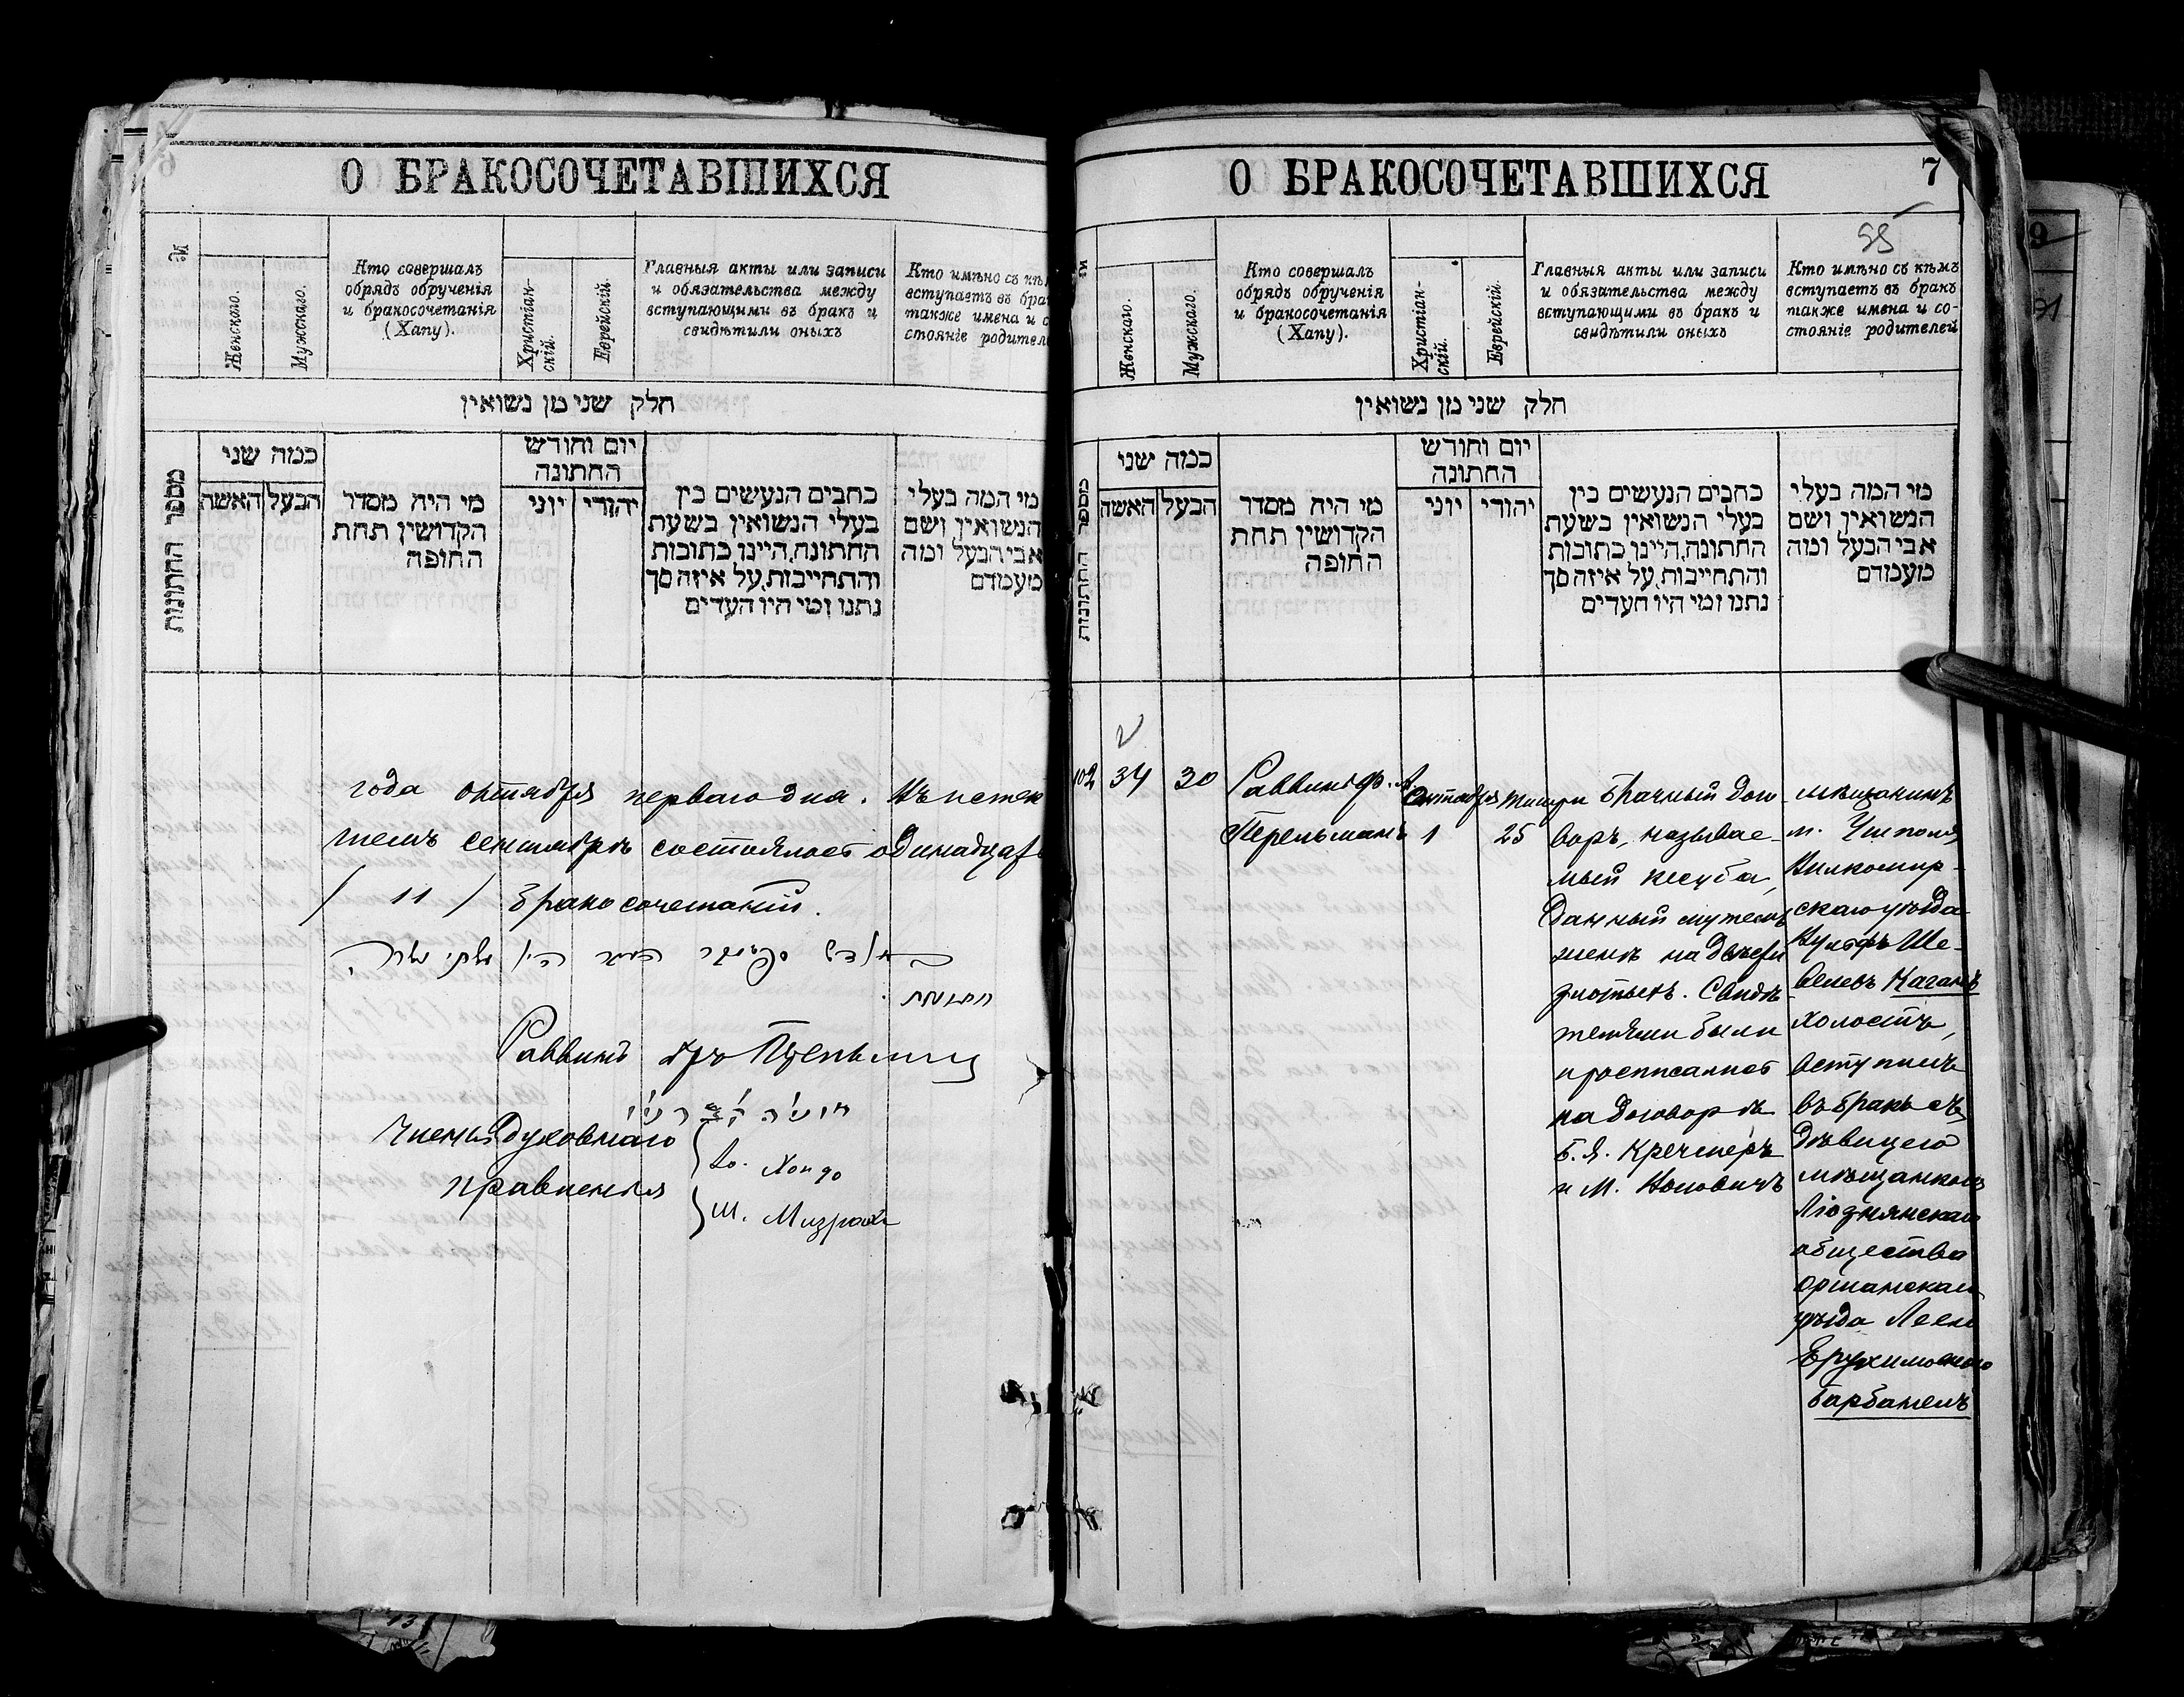 О БРАКОСОЧЕТАВШИХСЯ
№
Женскаго.
Мужскаго.
Кто совершалъ
обрядъ обрученія
и бракосочетанія
(Хапу).
Христіан-
скій.
Еврейскій.
Главныя акты или записи
и обязательства между
вступающими въ бракъ и
свидѣтили оныхъ
Кто имѣно съ
вступаетъ въ
также имена и
стояніе
חלק שני מן נשואין
מספר החתונות
כמה שני
האשה
הבעל
מי היה מסדר
הקדושין תחת
החופה
יום וחודש
החתונה
יוני
יהודי
כתבים הנעשים בין
בעלי הנשואין בשעת
החתונה, היינו כתובות
והתחייבות, על איזה סך
נתנו ומי היו העדים
מי המה בעלי
הנשואין ושם
אבי הבעל ומה
מעמדם
года октября перваго дня. Въ истек
шемъ сентябрѣ состоялось одинадцать
/ 11 / бракосочетаній.
Раввинъ
Члены Духовнаго
правленія
Ш. Мизрахи
О БРАКОСОЧЕТАВШИХСЯ
7
55
№
Женскаго.
Мужскаго.
Кто совершалъ
обрядъ обрученія
и бракосочетанія
(Хапу).
Христіан-
скій.
Еврейскій.
Главныя акты или записи
и обязательства между
вступающими въ бракъ и
свидѣтили оныхъ
Кто имѣно съ кѣмъ
вступаетъ въ бракъ
также имена и со-
стояніе родителей
חלק שני מן נשואין
מספר החתונות
כמה שני
האשה
הבעל
מי היה מסדר
הקדושין תחת
החופה
יום וחודש
החתונה
יוני
יהודי
כתבים הנעשים בין
בעלי הנשואין בשעת
החתונה, היינו כתובות
והתחייבות, על איזה סך
נתנו ומי היו העדים
מי המה בעלי
הנשואין ושם
אבי הבעל ומה
מעמדם
102
34
30
Раввинъ
Перельманъ
Октября
1
Тишри
25
Брачный дого
воръ, называе-
мый кесуба,
данный мужемъ
женѣ на двѣсти
злотыхъ. Свидѣ-
телями были
прописанные
на договорѣ
Б. Я. Кречмеръ
и М.
мѣщанинъ
м. Ушполя,
Вилкомир-
скаго уѣзда
Вульфъ Ше-
велевъ Каганъ
холостъ,
вступилъ
въ бракъ съ
дѣвицею
мѣщанкою
Ліознянскаго
общества
Оршанскаго
уѣзда Леею
Ерухимовною
Барбанель
9
91